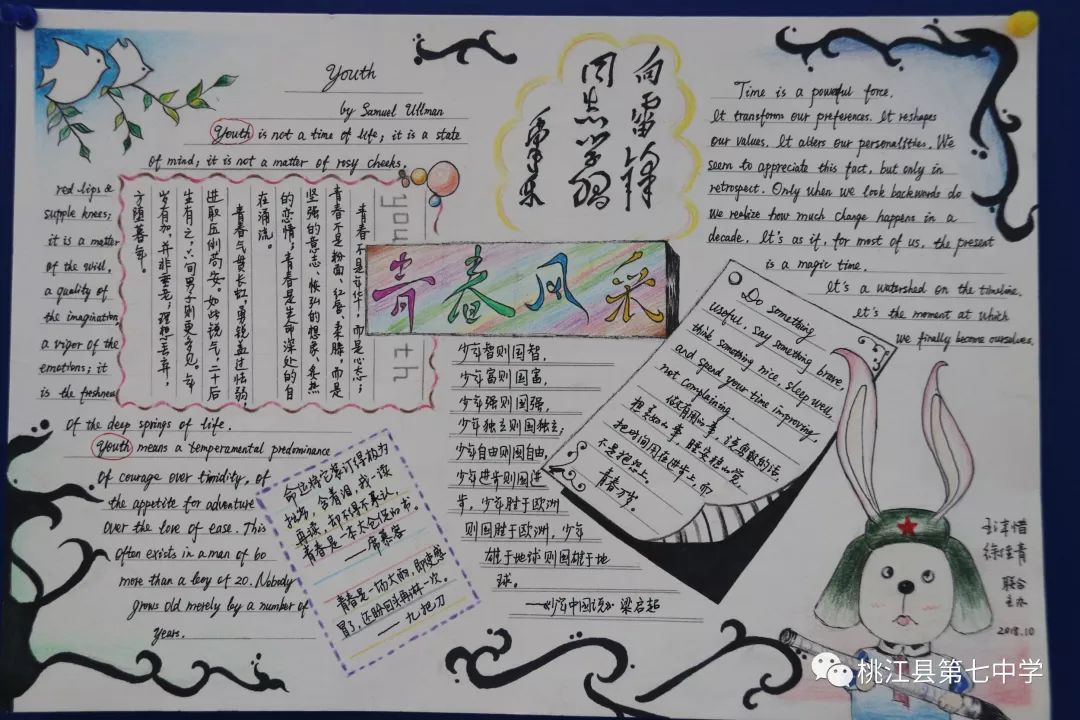 Youth
by Samuel Ullman
Youth is not a time of life; it is a state
of mind; it is not a matter of rosy cheeks,
red lips &
supple knees;
it is a matter
of the will,
a quality of
the imagination,
a vigor of the
emotions; it
is the freshness
of the deep springs of life.
Youth means a temperamental predominance
of courage over timidity, of
the appetite for adventure
over the love of ease. This
often exists in a man of 60
more than a boy of 20. Nobody
grows old merely by a number of
years.
youth
青春不是年华,而是心态;
青春不是粉面、红唇、柔膝,而是
坚强的意志、恢弘的想象、炙热
的恋情;青春是生命深处的自
在涌流。
青春气贯长虹,勇锐盖过怯弱,
进取压倒苟安。如此锐气,二十后
生有之,六旬男子则更多见。年
岁有加,并非垂老;理想丢弃,
方堕暮年。
向雷锋
同志学习
毛泽东
青春风采
少年智则国智,
少年富则国富,
少年强则国强,
少年独立则国独立;
少年自由则国自由,
少年进步则国进
步,少年胜于欧洲
则国胜于欧洲,少年
雄于地球则国雄于地
球。
——《少年中国说》梁启超
命运将它装订得极为
拙劣,含着泪,我一读
再读,却不得不承认,
青春是一本太仓促的书。
——席慕容
青春是一场大雨,即使感
冒了,还盼回头再淋一次。
——九把刀
Time is a powerful force.
It transform our preferences. It reshapes
our values. It alters our personalities. We
seem to appreciate this fact, but only in
retrospect. Only when we look backwards do
we realize how much change happens in a
decade. It's as if, for most of us, the present
is a magic time.
It's a watershed on the timeline.
It's the moment at which
we finally become ourselves.
Do something
useful, say something brave,
think something nice, sleep well,
and spend your time improving,
not complaining.
做有用的事,说勇敢的话,
想美好的事,睡安稳的觉,
把时间用在进步上,而
不是抱怨上。
青春万岁。
徐佳青
联合
主办
2018.10
桃江县第七中学